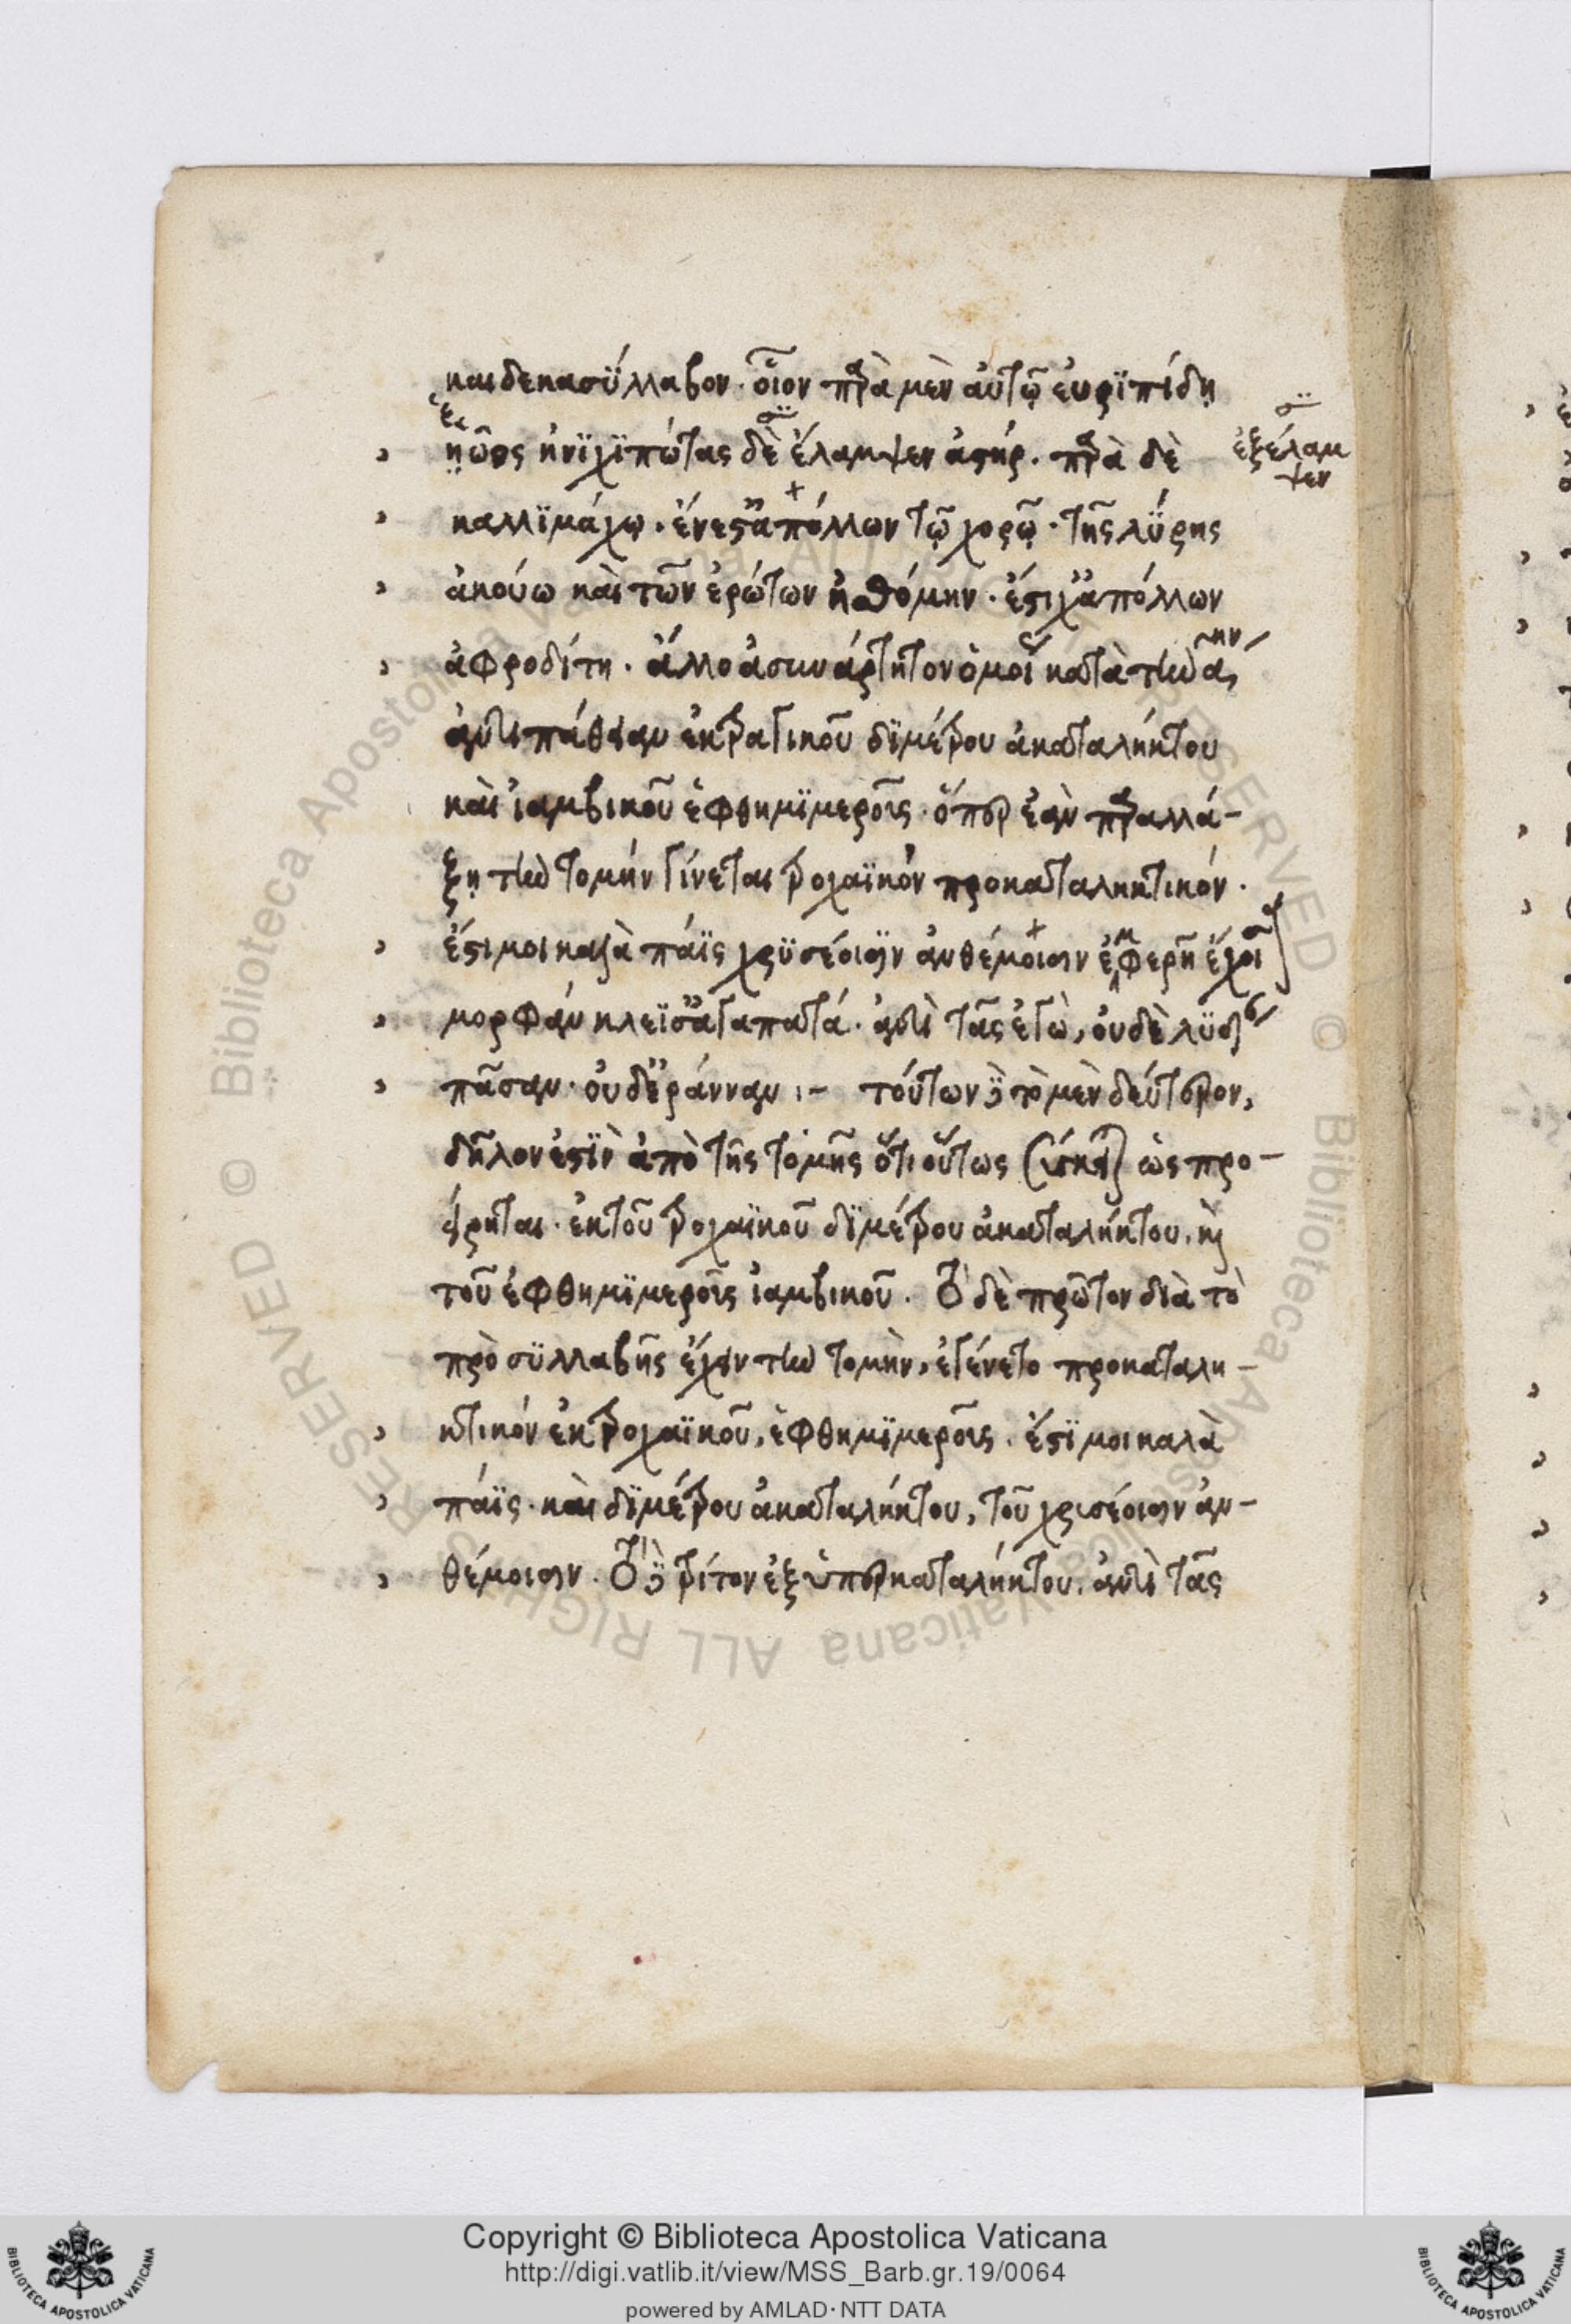 καιδεκασϋλλαβον· οἷον παρὰ μὲν αὐτῷ εὐριπίδῃ
ἑῷος ἡνίχ ἱππότας δὲ ἔλαμψεν ἀστήρ. παρὰ δὲ
ἐξέλαμ
ψεν
καλλϊμάχω. ἔνεστ' ἀπόλλων τῷ χορῷ· τῆς λύρης
ἀκούω καὶ τῶν ἐρώτων ἠσθόμην. ἔστι χ' ἀπόλλων
ἀφροδίτη. ἄλλο ἀσυνάρτητον ὁμοί κατὰ τὴν αην
ἀντιπάθειαν ἐκ τρατικοῦ διμέτρου ἀκαταλήκτου
καὶ ἰαμβικοῦ ἑφθημιμεροῦς. ὅπερ ἐὰν παραλλά-
ξῃ τὴν τομήν γίνεται τροχαϊκόν προκαταληκτικόν.
ἔστι μοι καλὰ πάϊς χρυσέοισιν ἀνθέμοισιν ἐμφερῆ ἔχοισα
μορφάν κλεῒς ἀγαπατά. ἀντὶ τᾶς ἐγὼ, οὐδὲ λυδ
πᾶσαν. οὐδ' ἐράνναν :- τούτων δὲ τὸ μὲν δεύτερον,
δῆλον ἐστὶν ἀπὸ τῆς τομῆς ὅτι οὕτως ὡς προ-
είρηται. ἐκ τοῦ τροχαϊκοῦ διμέτρου ἀκαταλήκτου, καὶ
τοῦ ἐφθημιμεροῦς ἰαμβικοῦ. Τὸ δὲ πρῶτον διὰ τὸ
πρὸ συλλαβῆς ἔχειν τὴν τομὴν, ἐγένετο προκαταλη-
κτικόν ἐκ τροχαϊκοῦ, ἑφθημιμεροῦς. ἔστι μοι καλὰ
πάϊς. καὶ διμέτρου ἀκαταλήκτου, τοῦ χρισέοισιν ἀν-
θέμοισιν. Τὸ δὲ τρίτον ἐξ ὑπερκαταλήκτου. ἀντὶ τᾶς
Copyright © Biblioteca Apostolica Vaticana
http://digi.vatlib.it/view/MSS_Barb.gr.19/0064
powered by AMLAD·NTT DATA
BIBLIOTECA APOSTOLICA VATICANA
BIBLIOTECA APOSTOLICA VATICANA